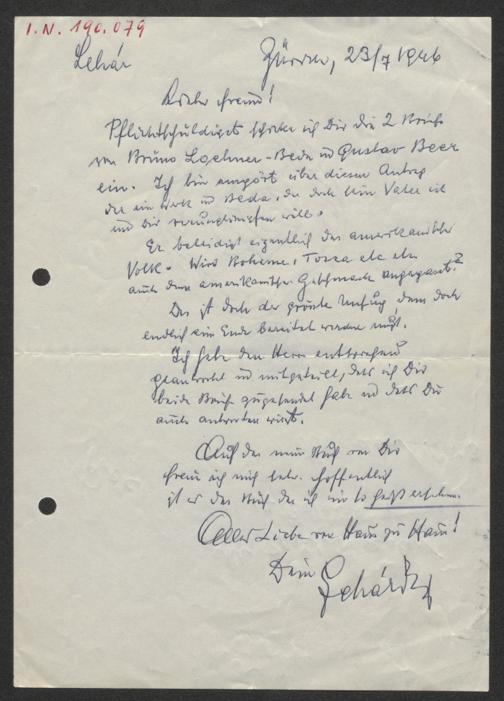 I.N. 190.079
Lehár
Zürich, 23/7 1946
Lieber Freund!
Pflichtschuldigst schicke ich Dir die 2 Briefe
von Bruno Loehner-Beda und Gustav Beer
ein. Ich bin empört über diesen Antrag
der ein Werk Beda, der doch sein Vater ist
und Dir verunglimpfen will.
Er beleidigt eigentlich das amerikanische
Volk. Wird Boheme, Tosca etc etc
auch dem amerikanischen Geschmack angepasst?
Das ist doch der größte Unfug, dem doch
endlich ein Ende bereitet werden muß.
Ich habe den Herrn entsprechend
geantwortet und mitgeteilt, dass ich Dir
beide Briefe zugesendet habe und dass Du
auch antworten wirst.
Auf das neue Buch von Dir
freue ich mich sehr. Hoffentlich
ist es das Buch das ich mir so heiß ersehne.
Alles Liebe von Haus zu Haus!
Dein
Lehár